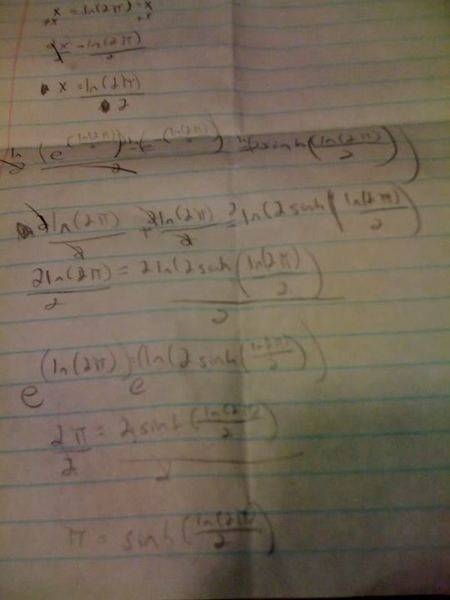 x = ln(2π) - x
+x +x
2x = ln(2π)
2
x = ln(2π)
2
(e^(ln(2π)/2)) - (e^-(ln(2π)/2)) = 2sinh(ln(2π)/2)
2ln(2π)/2 + 2ln(2π)/2 = 2ln(2sinh(ln(2π)/2)
2ln(2π)/2 = 2ln(2sinh(ln(2π)/2))
2
e^(ln(2π)) = e^(ln(2sinh(ln(2π)/2))
2π/2 = 2sinh(ln(2π)/2)
2
π = sinh(ln(2π)/2)